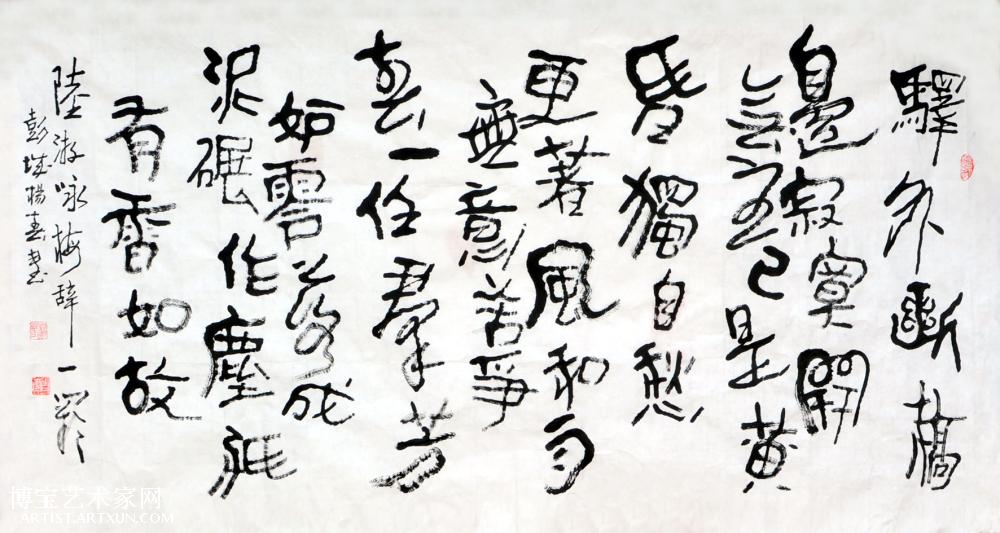 驛外斷橋
邊寂寞開
無主已是黃
昏獨自愁
更著風和雨
無意苦爭
春一任羣芳
妒零落成
泥碾作塵祇
有香如故
陸游咏梅辞一
彭城楊春書
博宝艺术家网
ARTIST.ARTXUN.COM